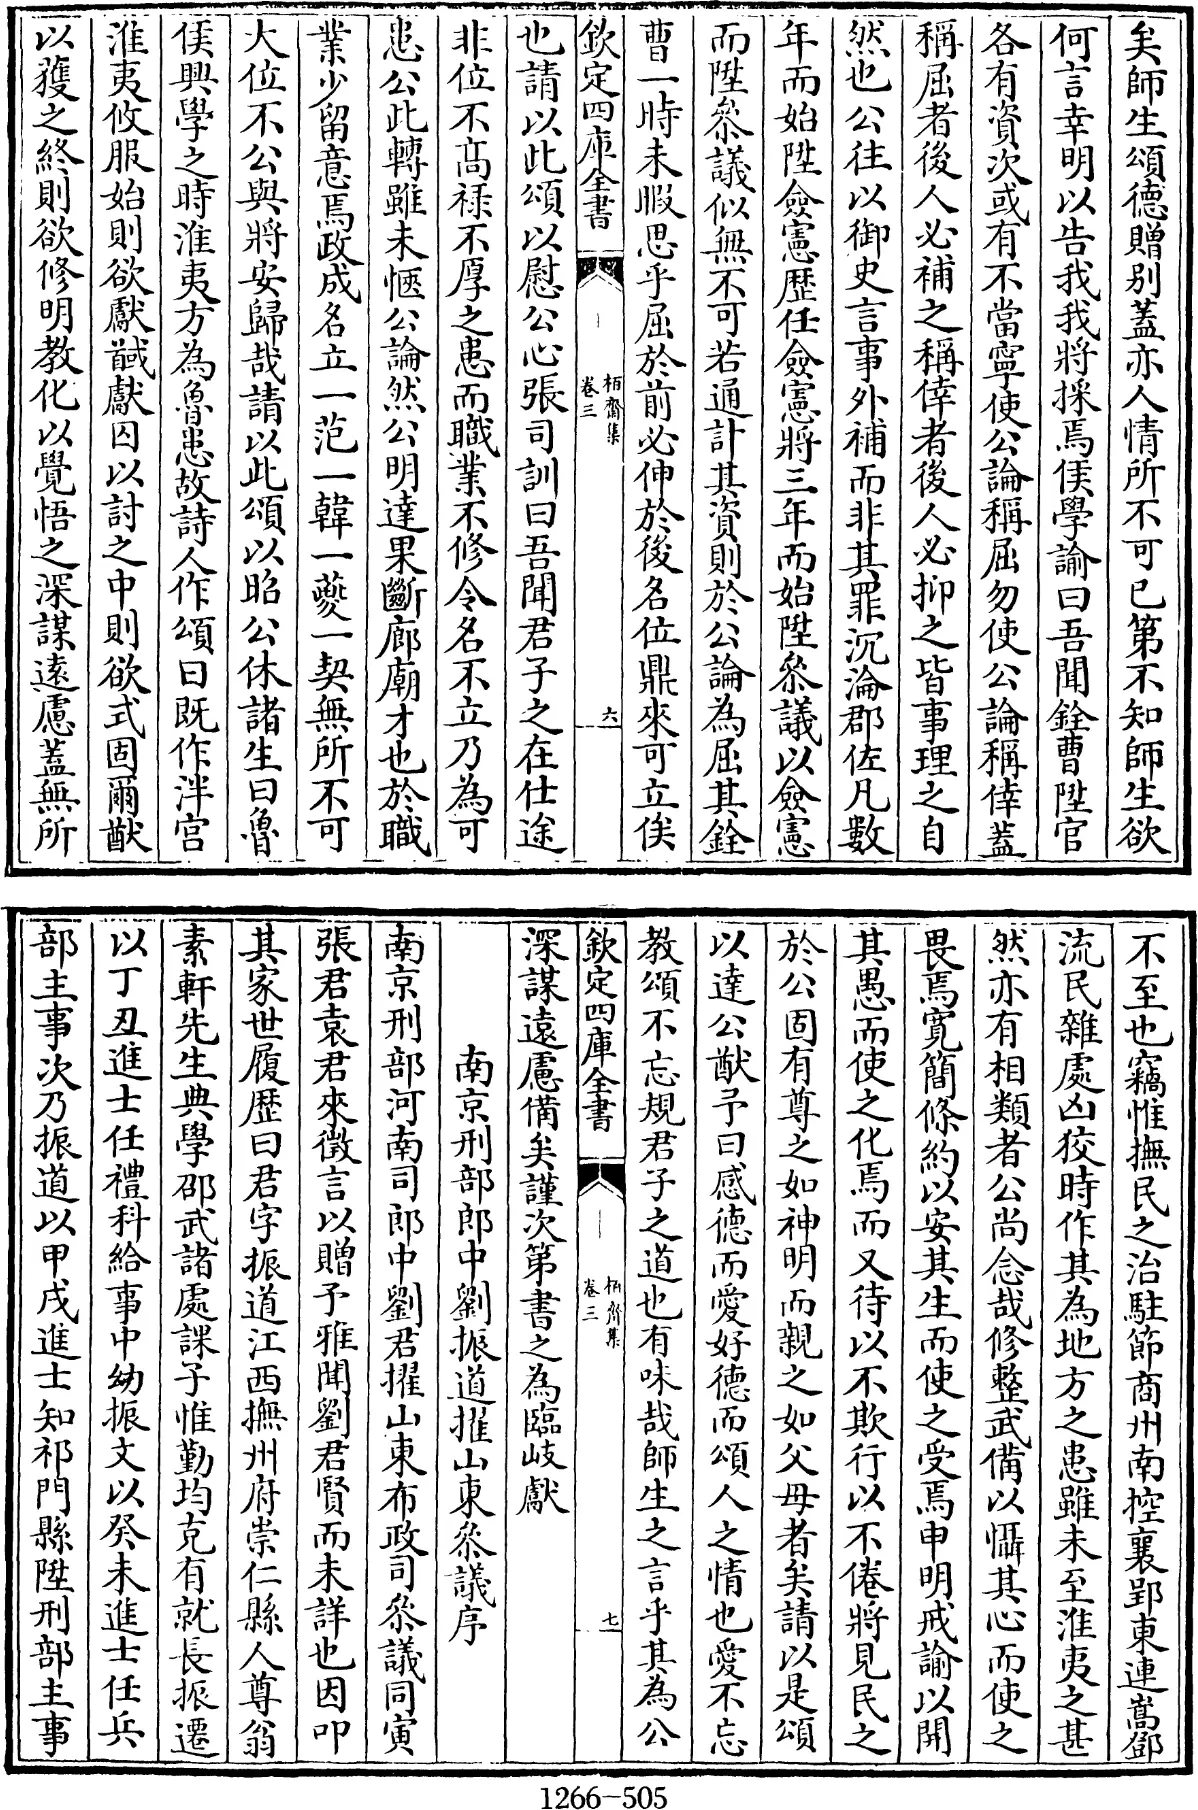 矣師生頌德贈别蓋亦人情所不可已第不知師生欲
何言幸明以告我我將採焉侯學諭曰吾聞銓曹陞官
各有資次或有不當寧使公論稱屈勿使公論稱倖蓋
稱屈者後人必補之稱倖者後人必抑之皆事理之自
然也公往以御史言事外補而非其罪沉淪郡佐凡數
年而始陞僉憲歴任僉憲將三年而始陞叅議以僉憲
而陞叅議似無不可若通計其資則於公論為屈其銓
曹一時未暇思乎屈於前必伸於後名位鼎來可立俟
欽定四庫全書
栢齋集
卷三
六
也請以此頌以慰公心張司訓曰吾聞君子之在仕途
非位不髙禄不厚之患而職業不修令名不立乃為可
患公此轉雖未愜公論然公明達果斷廊廟才也於職
業少留意焉政成名立一范一韓一夔一契無所不可
大位不公與將安歸哉請以此頌以昭公休諸生曰魯
侯興學之時淮夷方為魯患故詩人作頌曰既作泮宫
淮夷攸服始則欲獻馘獻囚以討之中則欲式固爾猷
以蒦之終則欲修明教化以覺悟之深謀逺慮蓋無所
不至也竊惟撫民之治駐節商州南控襄郢東連嵩鄧
流民雜處凶狡時作其為地方之患雖未至淮夷之甚
然亦有相類者公尚念哉修整武備以懾其心而使之
畏焉寛簡條約以安其生而使之受焉申明戒諭以開
其愚而使之化焉而又待以不欺行以不倦將見民之
於公固有尊之如神明而親之如父母者矣請以是頌
以達公猷予曰感德而愛好德而頌人之情也愛不忘
教頌不忘規君子之道也有味哉師生之言乎其為公
欽定四庫全書
栢齋集
卷三
七
深謀遠慮備矣謹次第書之為臨岐獻
南京刑部郎中劉振道擢山東叅議序
南京刑部河南司郎中劉君擢山東布政司叅議同寅
張君袁君來徵言以贈予雅聞劉君賢而未詳也因叩
其家世履歴曰君字振道江西撫州府崇仁縣人尊翁
素軒先生典學邵武諸處課子惟勤均克有就長振遷
以丁丑進士任禮科給事中幼振文以癸未進士任兵
部主事次乃振道以甲戌進士知祁門縣陞刑部主事
1266-505